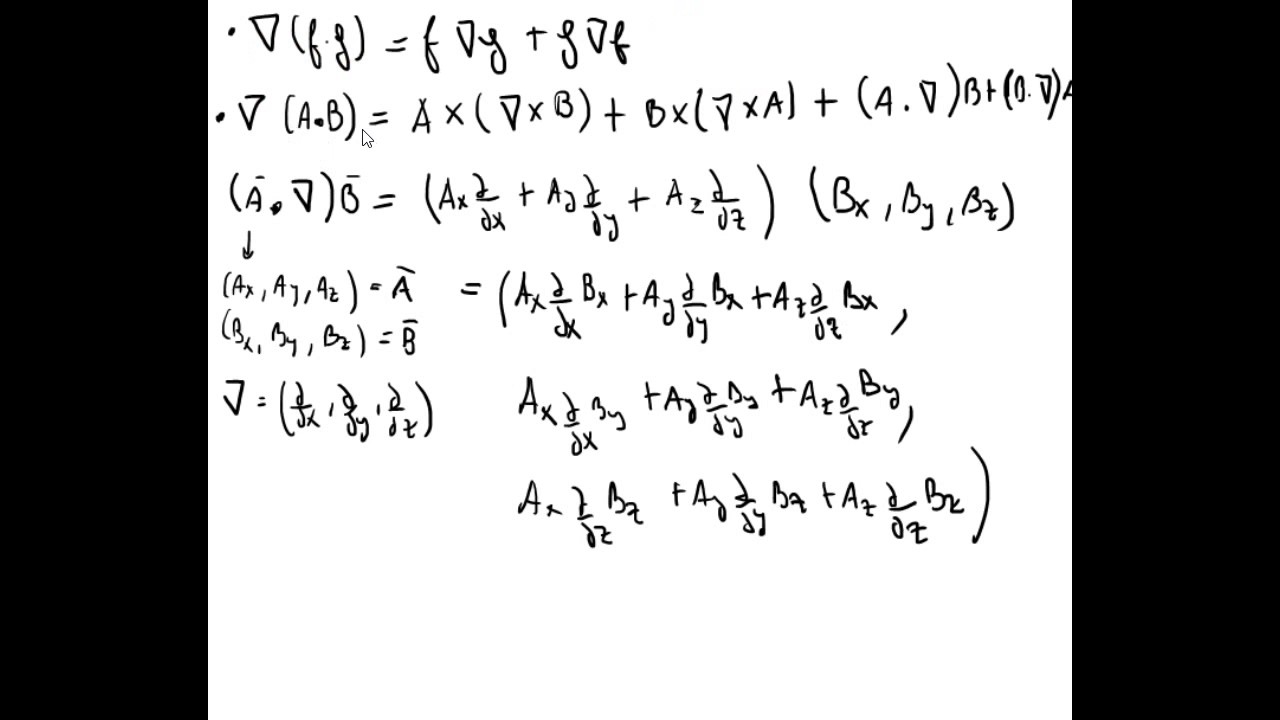 • ∇(f·g) = f ∇g + g ∇f
• ∇ (A·B) = A × (∇ × B) + B × (∇ × A) + (A · ∇)B + (B · ∇)A
(A̅ · ∇)B̅ = (Ax ∂/∂x + Ay ∂/∂y + Az ∂/∂z) (Bx , By , Bz)
↓
(Ax , Ay , Az) = A̅ = (Ax ∂/∂x Bx + Ay ∂/∂y Bx + Az ∂/∂z Bx ,
(Bx , By , Bz) = B̅
∇ = (∂/∂x , ∂/∂y , ∂/∂z) Ax ∂/∂x By + Ay ∂/∂y By + Az ∂/∂z By ,
Ax ∂/∂z Bz + Ay ∂/∂y Bz + Az ∂/∂z Bz)